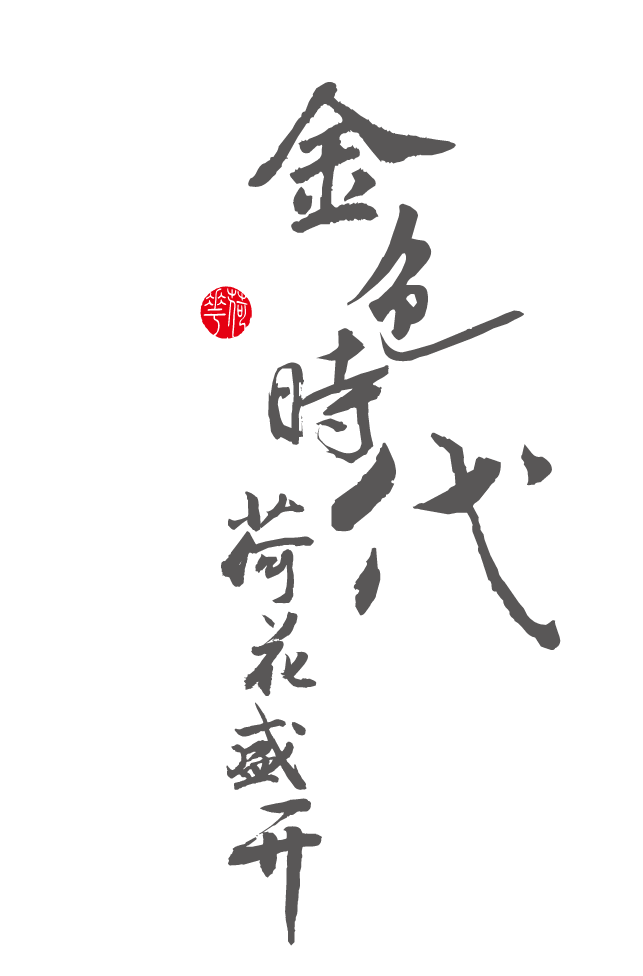 金色時代
荷花盛开
荷華